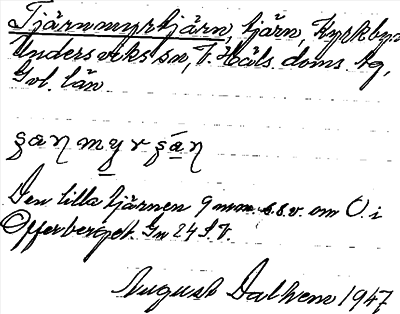 Tjärnmyrtjärn, tjärn, Kyrkbyn
Undersviks sn, V. Häls. doms. tg,
Gvl. län
Den lilla tjärnen 9 mm. s.s.v. om O. i
Offerberget. Gn 24 S.V.
August Dalhem 1947